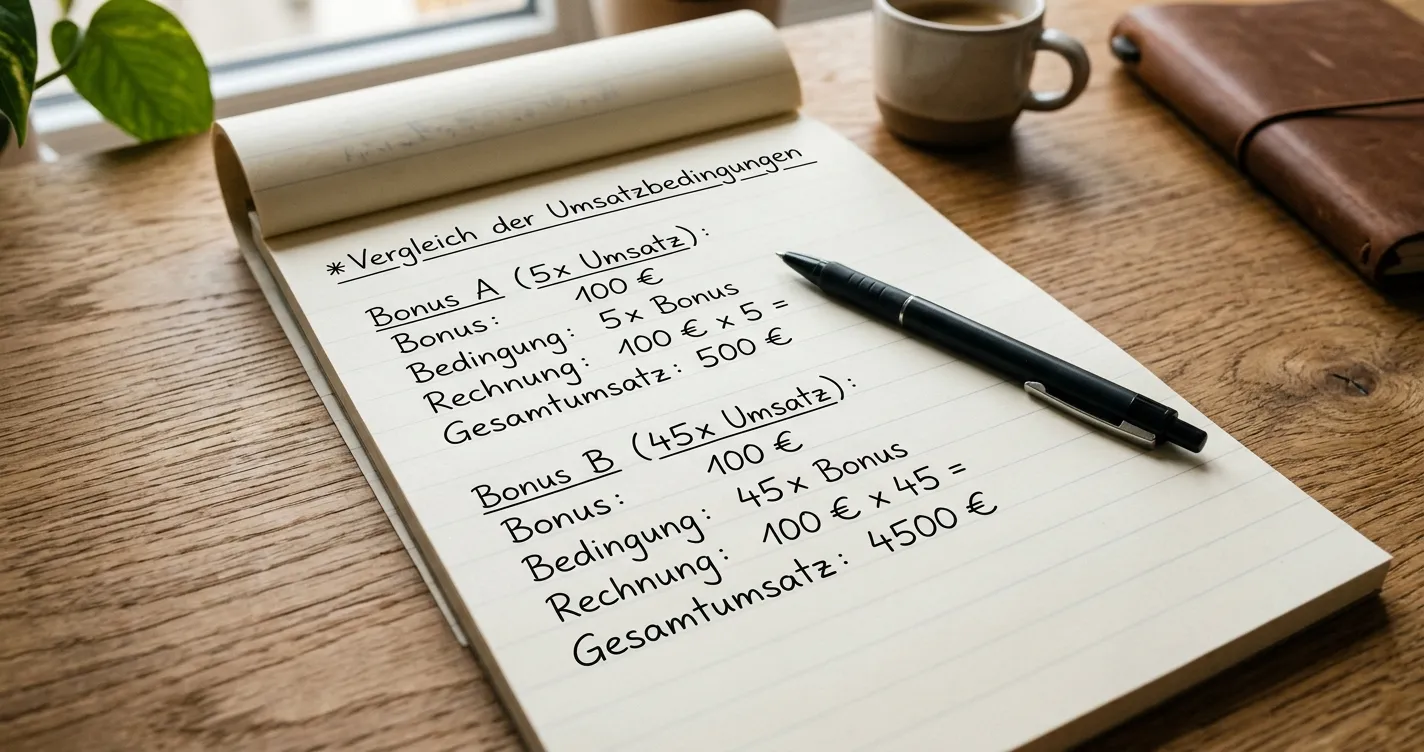 *Vergleich der Umsatzbedingungen
Bonus A (5x Umsatz):
Bonus: 100 €
Bedingung: 5x Bonus
Rechnung: 100 € x 5 =
Gesamtumsatz: 500 €
Bonus B (45x Umsatz):
Bonus: 100 €
Bedingung: 45x Bonus
Rechnung: 100 € x 45 =
Gesamtumsatz: 4500 €